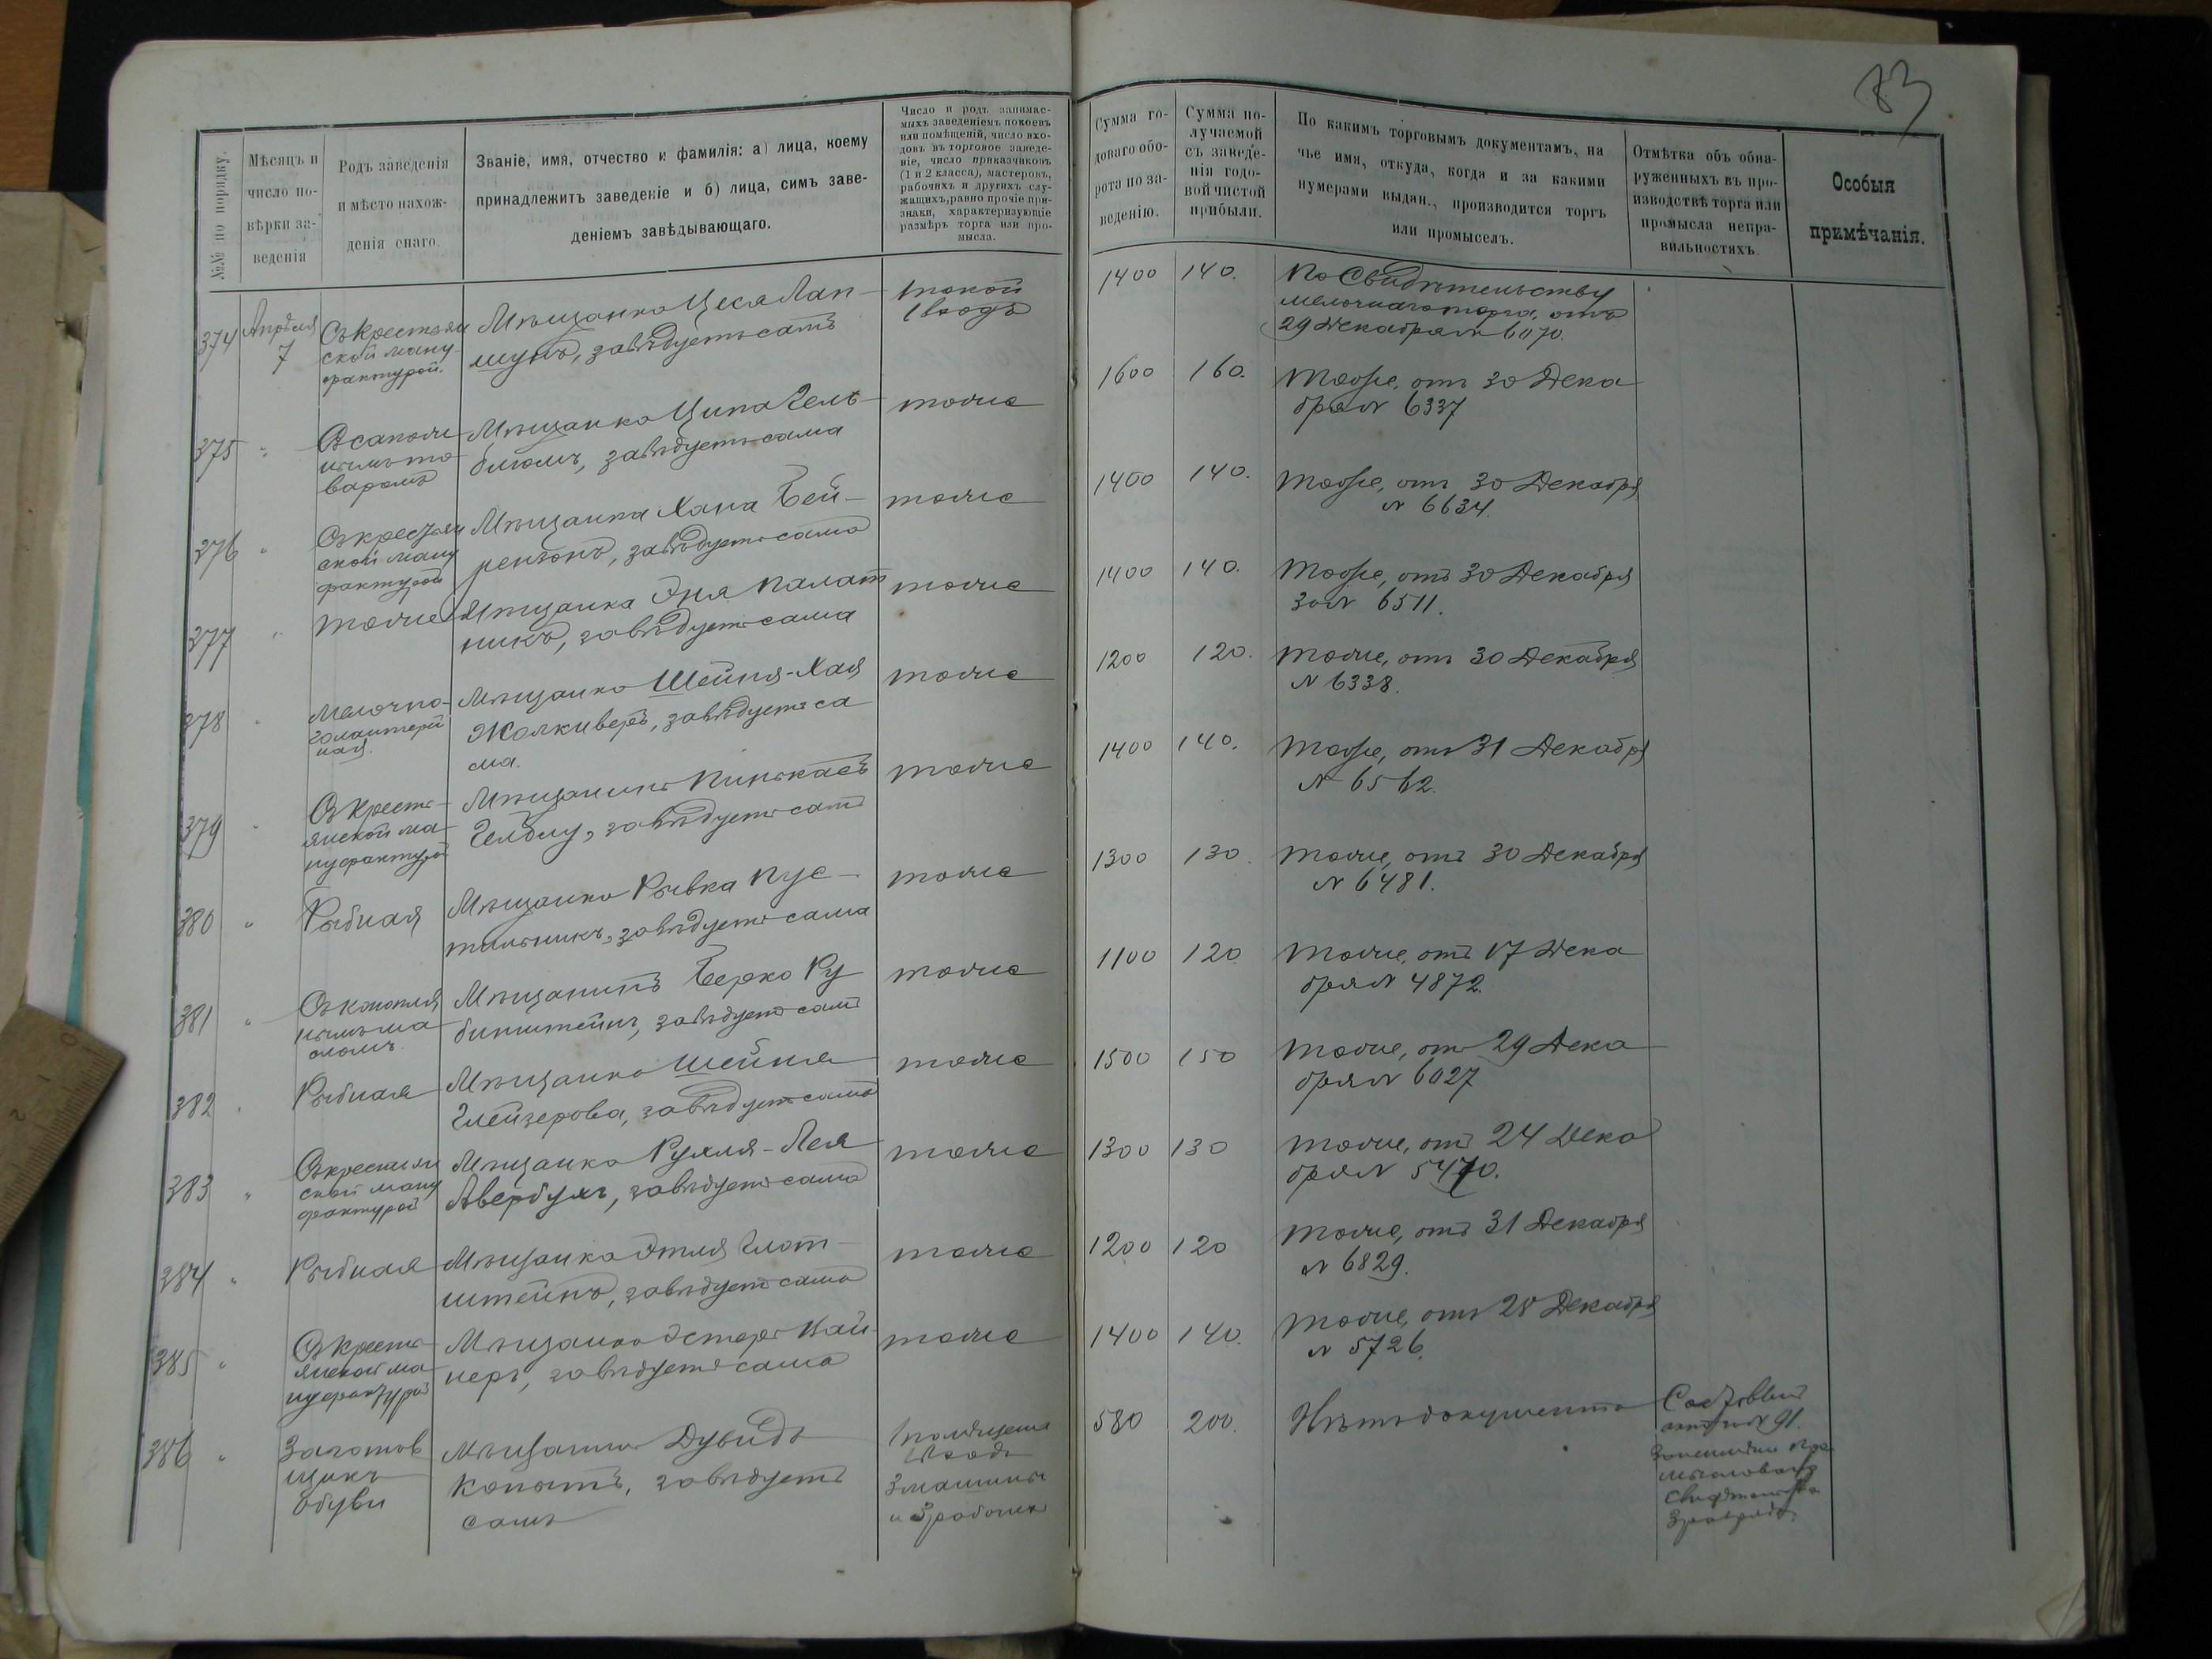 83
№№ по порядку.
Мѣсяцъ и
число по-
вѣрки за-
веденія
Родъ заведенія
и мѣсто нахож-
денія онаго.
Званіе, имя, отчество и фамилія: а) лица, коему
принадлежитъ заведеніе и б) лица, симъ заве-
деніемъ завѣдывающаго.
Число и родъ занимае-
мыхъ заведеніемъ покоевъ
или помѣщеній, число вхо-
довъ въ торговое заведе-
ніе, число приказчиковъ
(1 и 2 класса), мастеровъ,
рабочихъ и другихъ слу-
жащихъ, равно прочіе при-
знаки, характеризующіе
размѣръ торга или про-
мысла.
Сумма го-
доваго обо-
рота по за-
веденію.
Сумма по-
лучаемой
съ заведе-
нія годо-
вой чистой
прибыли.
По какимъ торговымъ документамъ, на
чье имя, откуда, когда и за какими
нумерами выдан., производится торгъ
или промыселъ.
Отмѣтка объ обна-
руженныхъ въ про-
изводствѣ торга или
промысла непра-
вильностяхъ.
Особыя
примѣчанія.
374
Апрѣля
7
Съ крестьян
ской ману-
фактурой.
Мѣщанка Цеся Лап-
шунъ, завѣдуетъ самъ
1 покой
1 входъ
1400
140.
По Свидѣтельству
мелочнаго торга, отъ
29 Декабря № 6070.
375
"
Съ сапож-
нымъ то-
варомъ
Мѣщанка Ципа Гель-
блюмъ, завѣдуетъ сама
тоже
1600
160.
Тоже, отъ 30 Дека
бря № 6337
376
"
Съ крестьян
ской ману
фактурой
Мѣщанка Хана Бей-
рензонъ, завѣдуетъ сама
тоже
1400
140.
Тоже, отъ 30 Декабря
№ 6634.
377
"
тоже
Мѣщанка Эня Палат
никъ, завѣдуетъ сама
тоже
1400
140.
Тоже, отъ 30 Декабря
за № 6511.
378
"
Мелочно-
галантерей
ная.
Мѣщанка Шейня-Хая
Жолкиверъ, завѣдуетъ са
ма.
тоже
1200
120.
Тоже, отъ 30 Декабря
№ 6338.
379
"
Съ кресть-
янской ма-
нуфактурой
Мѣщанинъ Пинькасъ
Гелбму, завѣдуетъ самъ
тоже
1400
140.
Тоже, отъ 31 Декабря
№ 6562.
380
"
Рыбная
Мѣщанка Рывка Пус-
тильникъ, завѣдуетъ сама
тоже
1300
130.
Тоже, отъ 30 Декабря
№ 6481.
381
"
Съ конопля
нымъ ма-
сломъ
Мѣщанинъ Берко Ру
бинштейнъ, завѣдуетъ самъ
тоже
1100
120
Тоже, отъ 17 Дека
бря № 4872.
382
"
Рыбная
Мѣщанка Шейня
Глейзерова, завѣдуетъ сама
тоже
1500
150
Тоже, отъ 29 Дека
бря № 6027
383
"
Съ крестьян
ской ману
фактурой
Мѣщанка Рухля-Лея
Авербухъ, завѣдуетъ сама
тоже
1300
130
Тоже, отъ 24 Дека
бря № 5470.
384
"
Рыбная
Мѣщанка Этля Глот-
штейнъ, завѣдуетъ сама
тоже
1200
120
Тоже, отъ 31 Декабря
№ 6829.
385
"
Съ кресть-
янской ма-
нуфактурой
Мѣщанка Эстеръ Кай-
неръ, завѣдуетъ сама
тоже
1400
140.
Тоже, отъ 28 Декабря
№ 5726.
386
"
Заготов
щикъ
обуви
Мѣщанинъ Дувидъ
Копытъ, завѣдуетъ
самъ
1 помѣщеніе
1 входъ
3 машины
и 3 рабочихъ
580
200.
Нѣтъ документа
актъ № 91.
свидѣтельства
3 разряда.